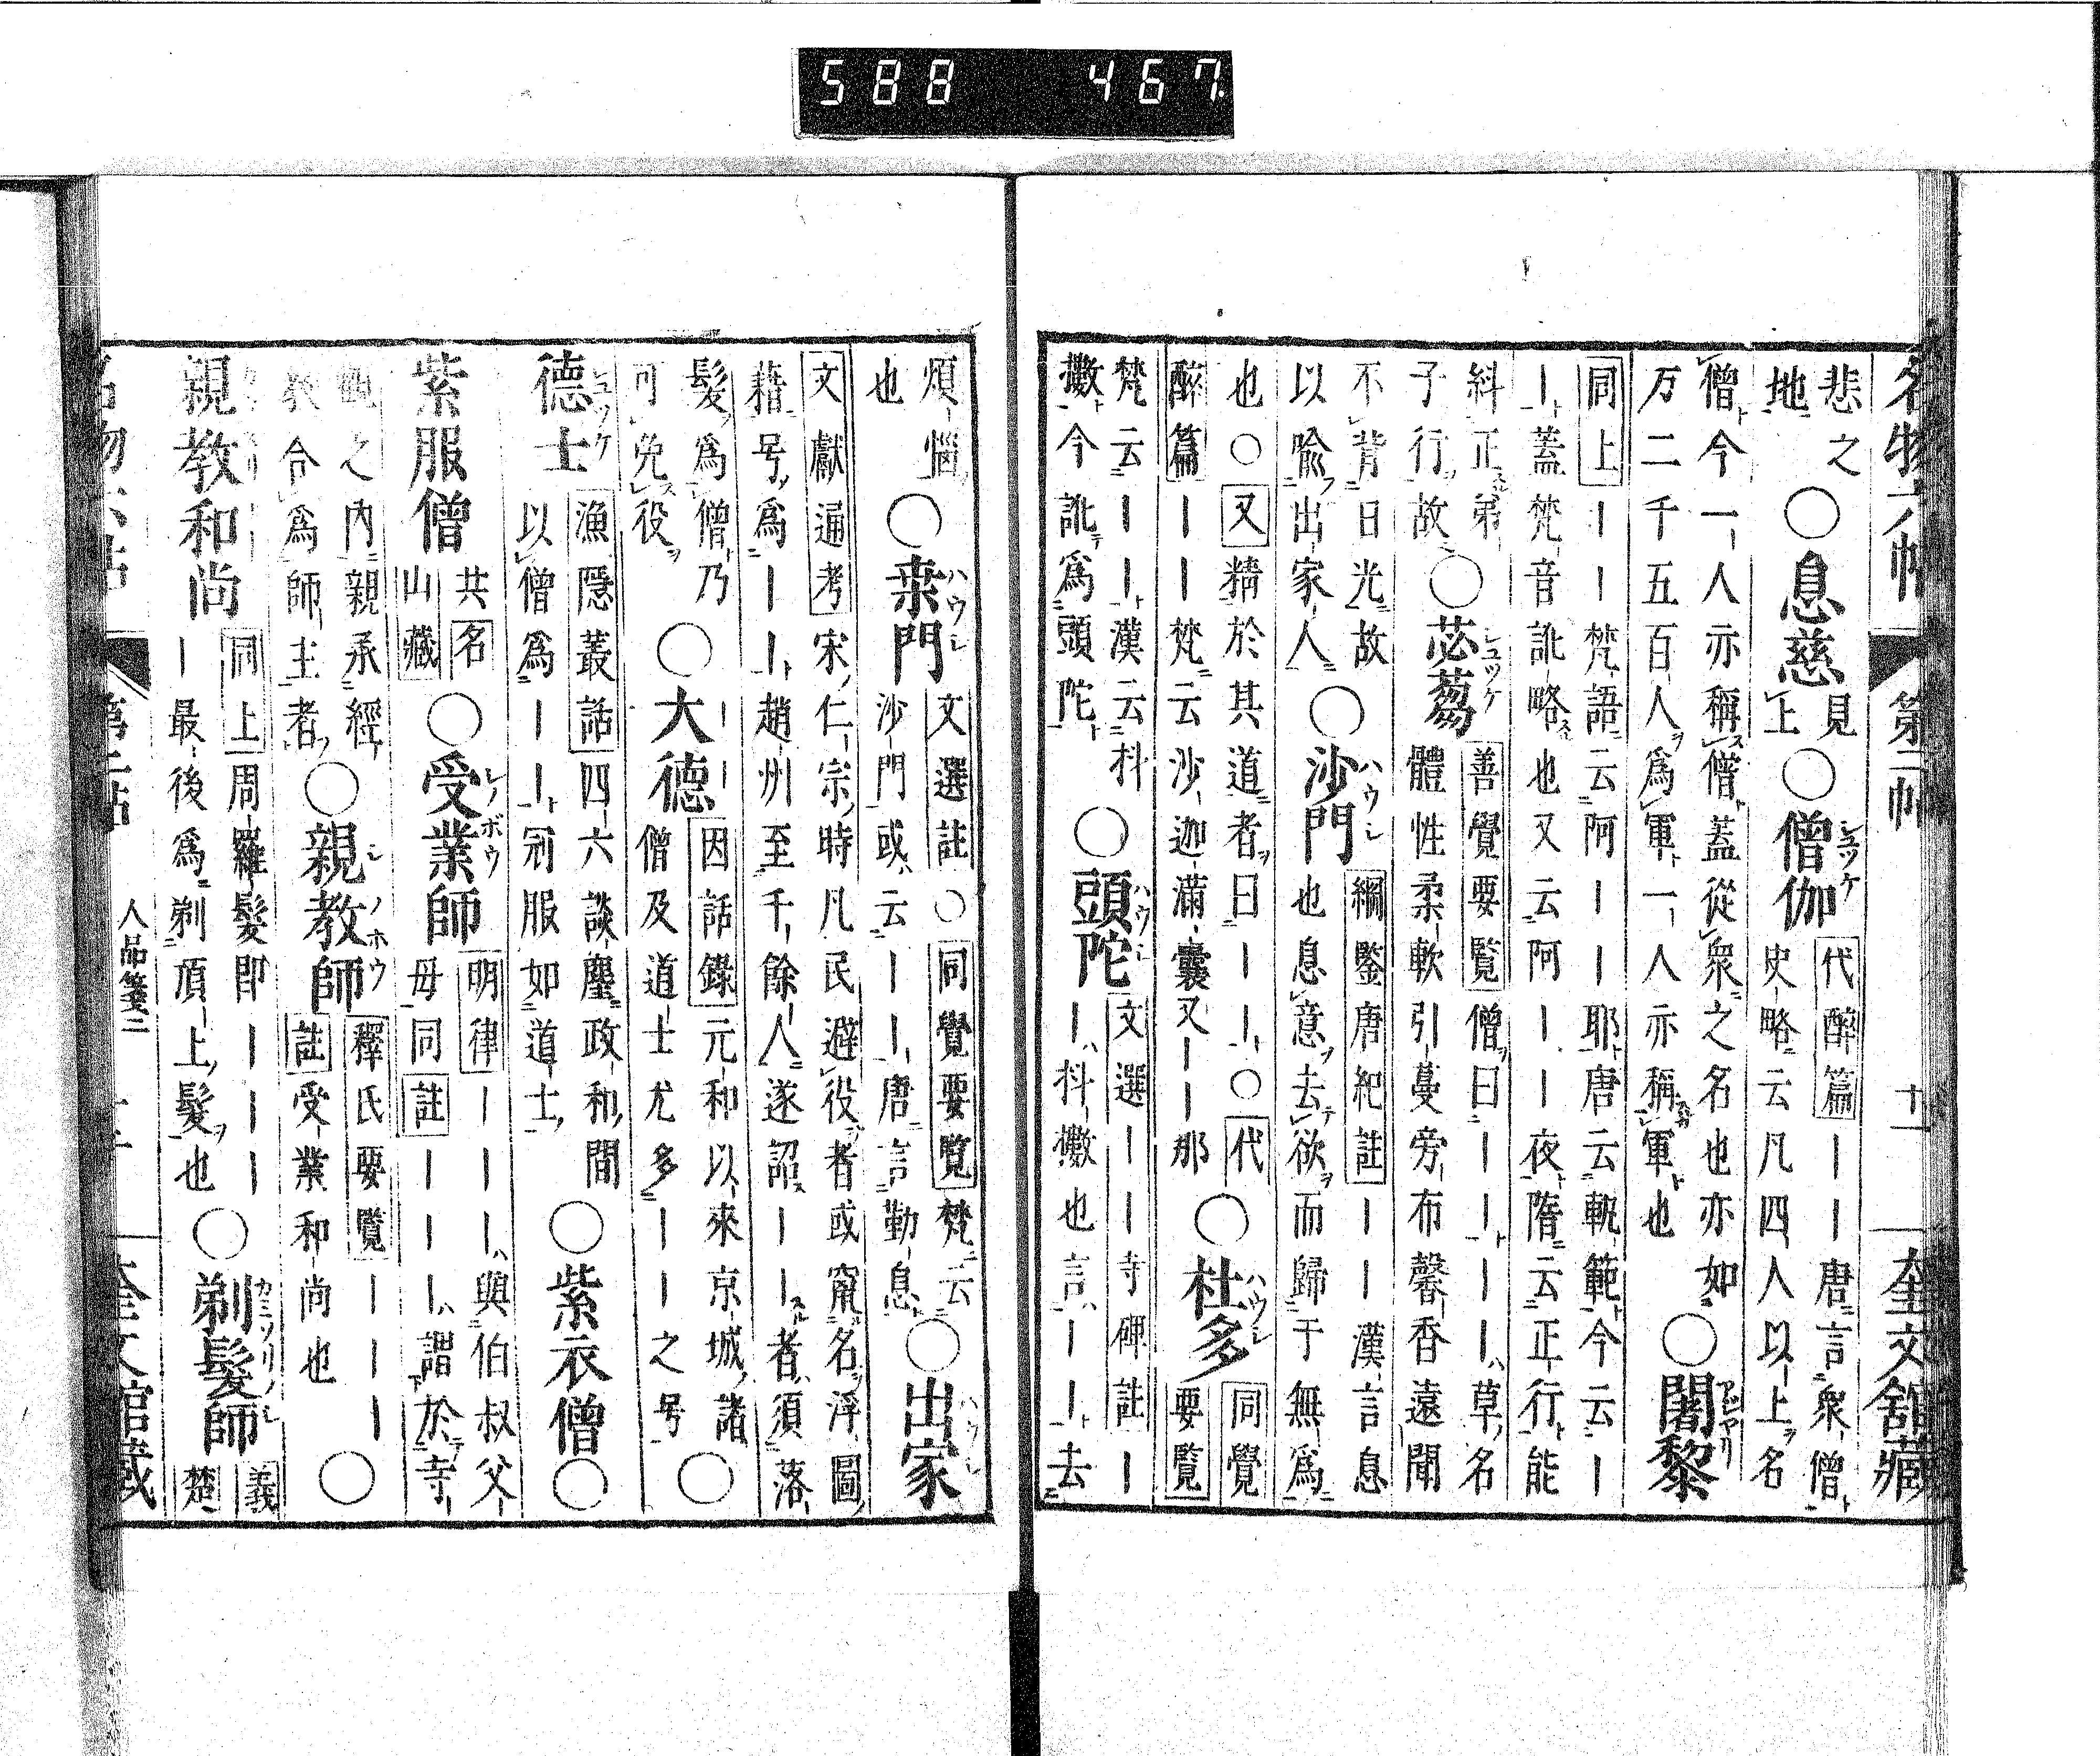 588 467
名物六帖 第二帖 十一 奎文館藏
悲之地 ○息慈 見上 ○僧伽 シュツケ 代醉篇 ｜｜唐言衆僧史略云凡四人以上名
僧今一人亦稱僧蓋從衆之名也亦如万二千五百人爲軍一人亦稱軍也 ○闍黎 アジャリ
同上 ｜｜梵語云阿｜｜耶唐云軌範今云｜｜蓋梵音訛略也又云阿｜｜夜隋云正行能
糾正弟子行故 ○苾蒭 シュツケ 善覺要覧 僧曰｜｜｜｜草名體性柔軟引蔓旁布馨香遠聞
不背日光故以喩出家人 ○沙門 ハウシ 綱鑒唐紀註 ｜｜漢言息也息意去欲而歸于無爲
也○又 精於其道者曰｜｜○代醉篇 ｜｜梵云沙迦滿嚢又｜｜那 ○杜多 ハウシ 同覺要覧
梵云｜｜｜漢云抖擻今訛爲頭陀 ○頭陀 ハウシ 文選｜｜寺碑註 ｜｜抖擻也言｜｜去
煩惱也 ○桒門 ハウシ 文選註 沙門或云｜｜○同覺要覧 梵云｜｜唐言勤息 ○出家 ハウシ
文獻通考 宋仁宗時凡民避役者或竄名浮圖籍号爲｜｜趙州至千餘人遂詔｜｜者須落
髮爲僧乃可免役 ○大德 因話錄 元和以來京城諸僧及道士尤多｜｜之号 ○
德士 シュツケ 漁隱叢話 四六談麈政和間以僧爲｜｜冠服如道士 ○紫衣僧○
紫服僧 共名山藏 ○受業師 シノボウ 明律 ｜｜｜與伯叔父母同 註 ｜｜｜謂於寺
觀之内親承經教合爲師主者 ○親教師 シノホウ 釋氏要覧 ｜｜｜註受業和尚也 ○
親教和尚 同上 周羅髮即｜｜｜｜最後爲剃頂上髮也 ○剃髮師 カミソリノシ 義楚
人品箋二